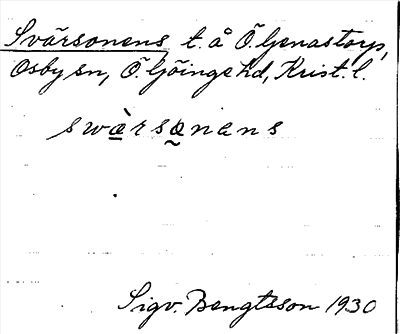 Svärsonens t. å Ö. Genastorp,
Osby sn, Ö. Göinge hd, Krist. l.
swæ̀rso̰nans
Sigv. Bengtsson 1930